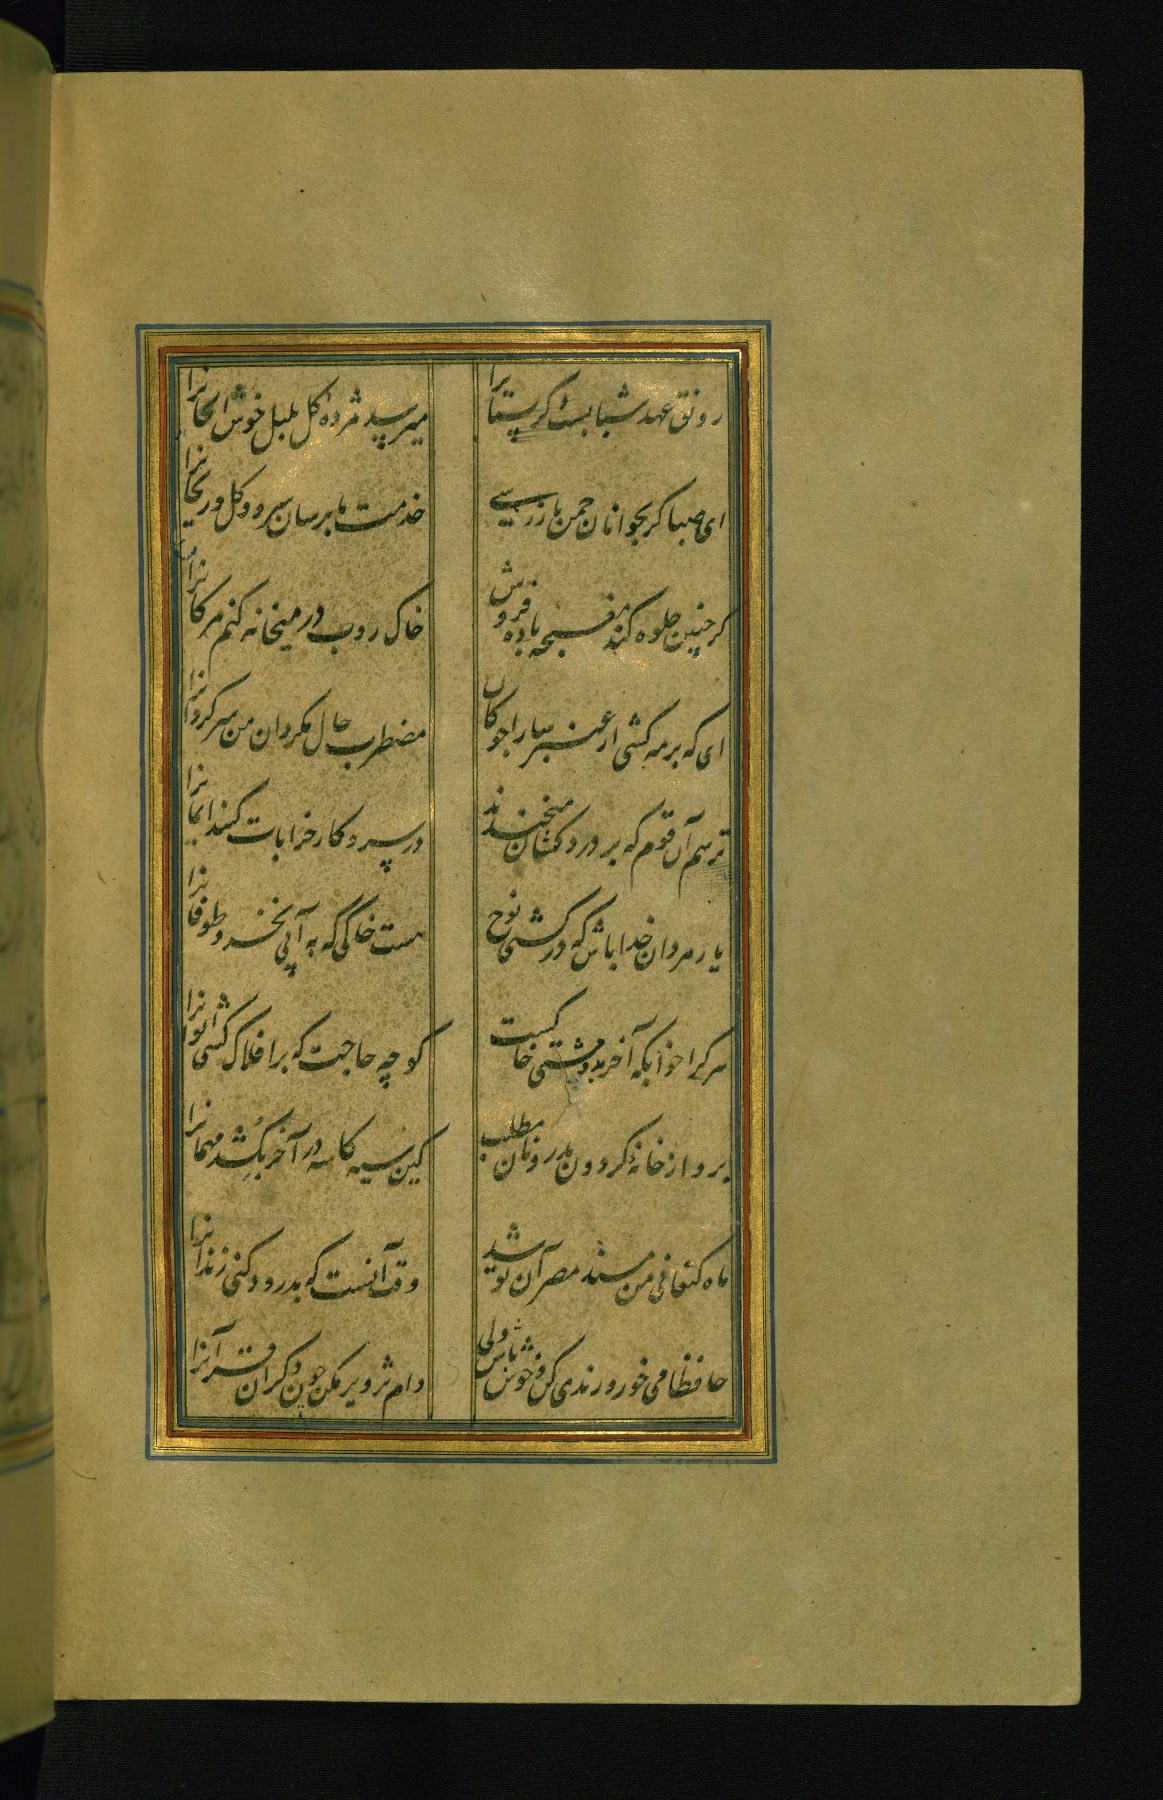 رونق عهد شبابست دگر بستانرا
میرسد مژدهٔ گل بلبل خوش الحانرا
ای صبا گر بجوانان چمن بازرسی
خدمت ما برسان سرو و گل و ریحانرا
گر چنین جلوه کند مغبچه باده فروش
خاک روب در میخانه کنم مژکانرا
ای که برمه کشی از عنبر سارا چوکان
مضطرب حال مکردان من سرکردانرا
ترسم آن قوم که بر دردکشان میخندند
در سر و کار خرابات کنند ایمانرا
یار مردان خدا باش که در کشتی نوح
هست خاکی که به آبی نخرد طوفانرا
هر کرا خوابکه آخر بدو مشتی خاکست
کو چه حاجت که بر افلاک کشی ایوانرا
برو از خانهٔ کردون بدر و نان مطلب
کین سیه کاسه در آخر بکُشد مهمانرا
ماه کنعانی من مسند مصر آن تو شد
وقت آنست که بدرود کنی زندانرا
حافظا می خور و رندی کن و خوش باش ولی
دام تزویر مکن چون دکران قرآنرا